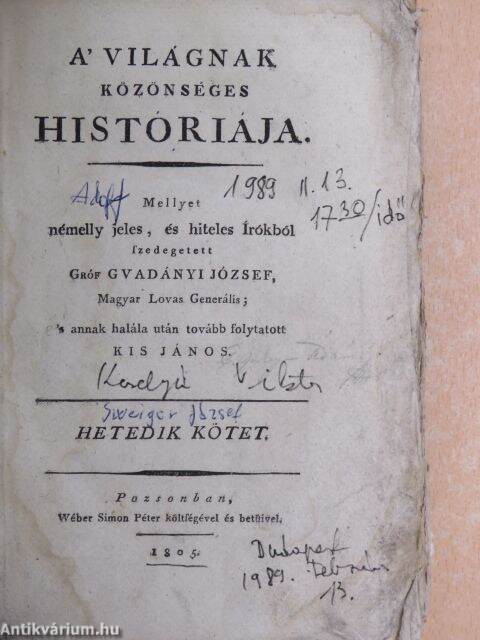 A' VILÁGNAK
KÖZÖNSÉGES
HISTÓRIÁJA.
1989 II. 13.
1730/idő
Mellyet
némelly jeles, és hiteles Írókból
ſzedegetett
GRÓF GVADÁNYI JÓZSEF,
Magyar Lovas Generális;
's annak halála után tovább folytatott
KIS JÁNOS.
Viktor
József
HETEDIK KÖTET.
Pozsonban,
Wéber Simon Péter költſégével és betűivel,
1805.
Budapest
1989. Február
13.
Antikvárium.hu